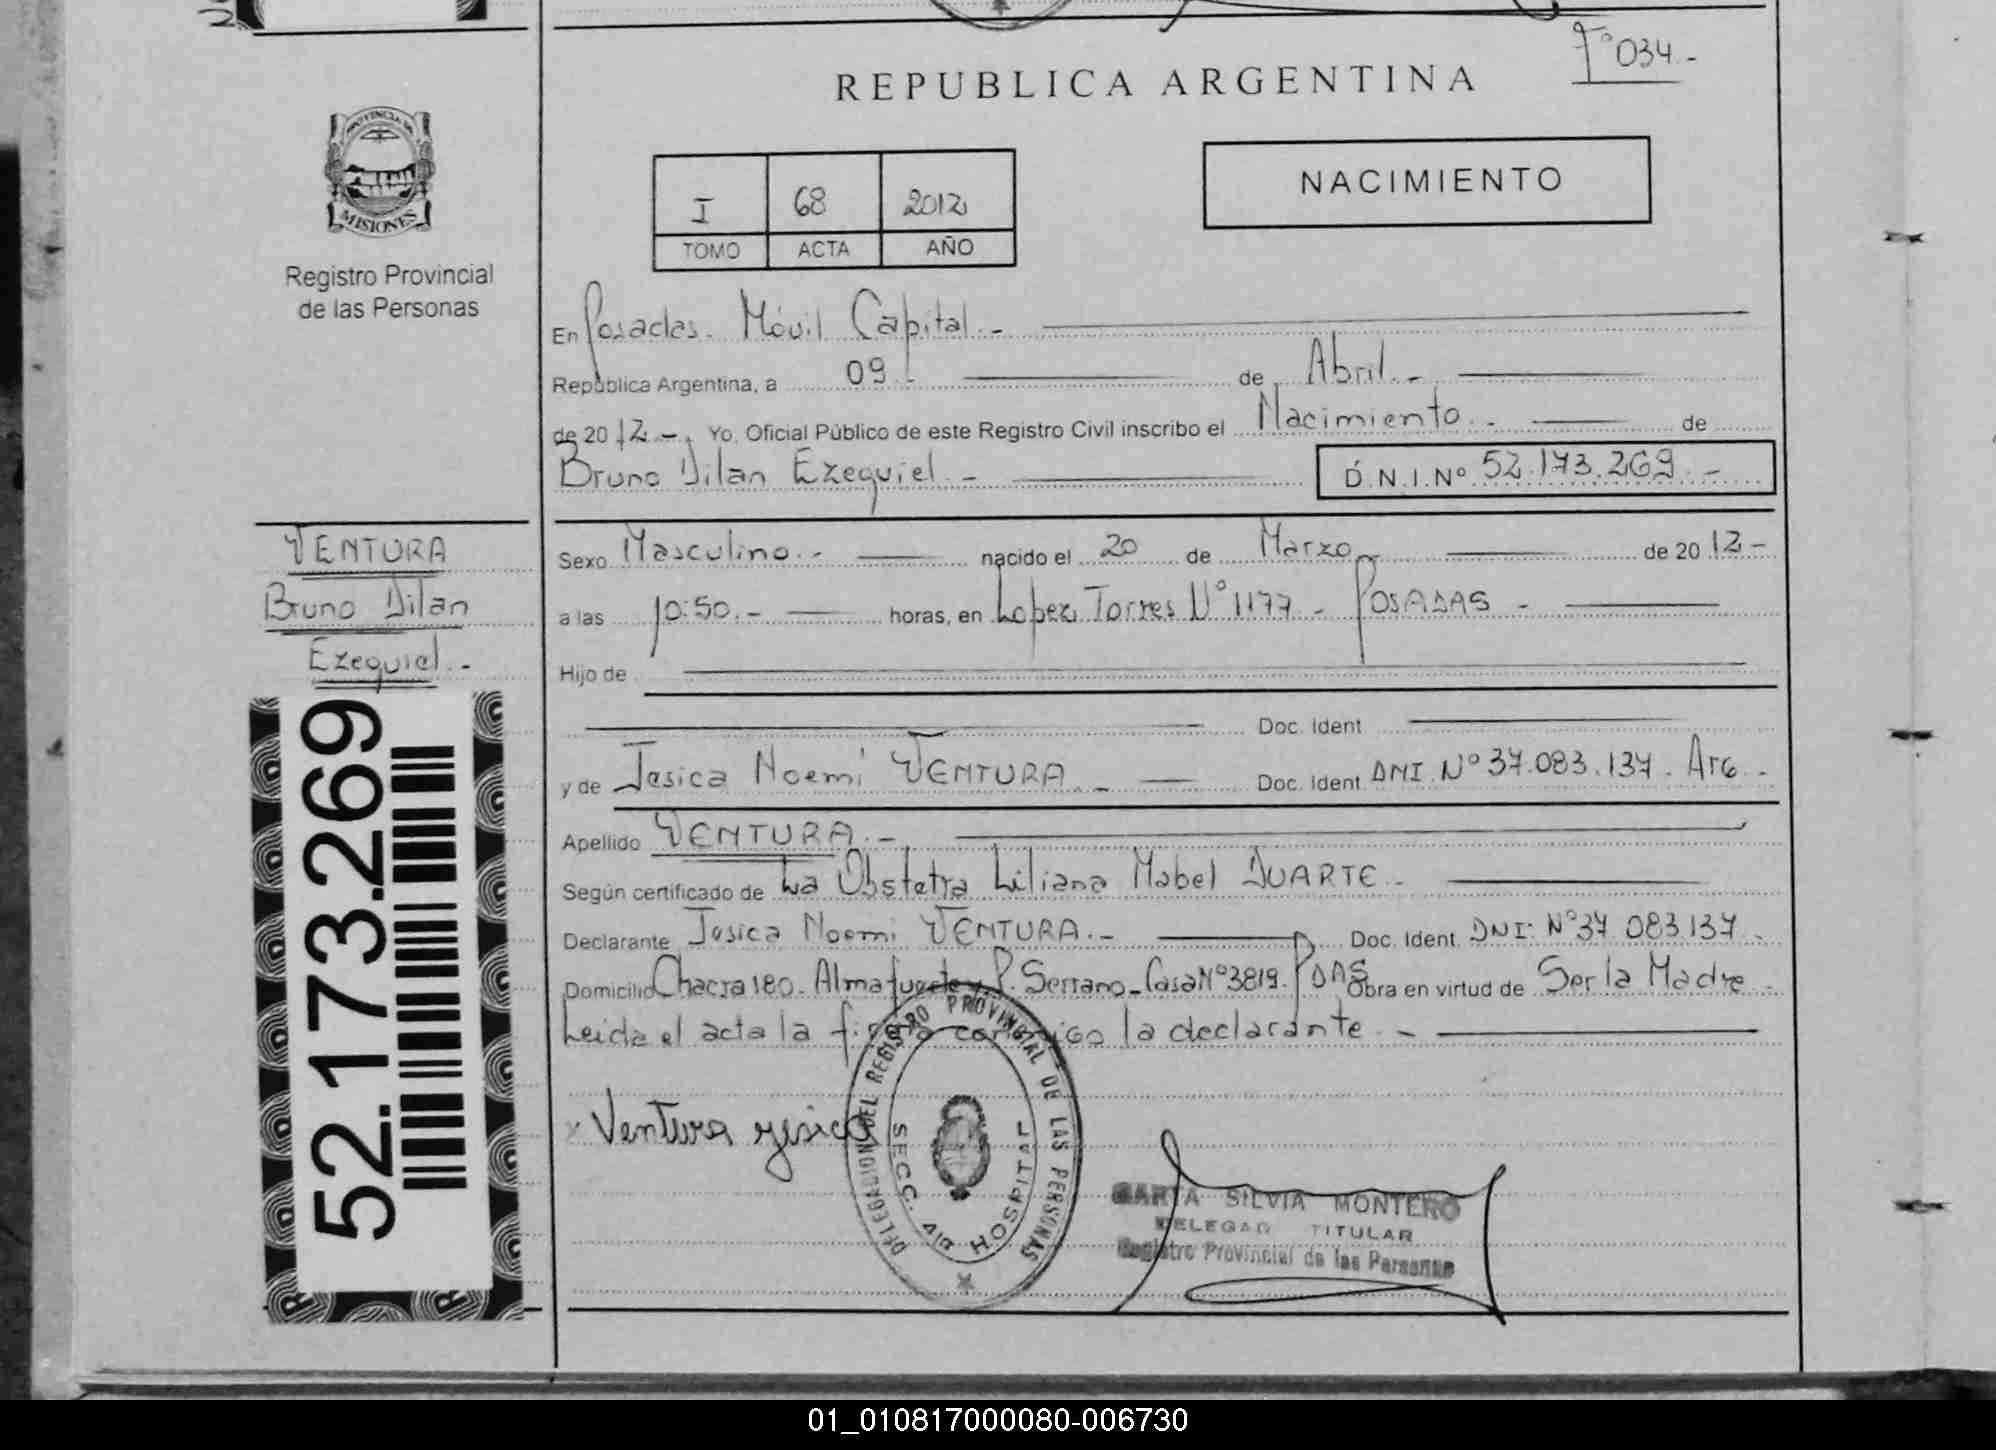 Fº 034.-
REPUBLICA ARGENTINA
PROVINCIA DE
MISIONES
Registro Provincial
de las Personas
I 68 2012
TOMO ACTA AÑO
NACIMIENTO
En Posadas. Móvil Capital.-
República Argentina, a 09.- de Abril.-
de 2012.-, Yo, Oficial Público de este Registro Civil inscribo el Nacimiento.- de
Bruno Dilan Ezequiel.- D.N.I.Nº 52.173.269.-
VENTURA
Bruno Dilan
Ezequiel.-
Sexo Masculino.- nacido el 20 de Marzo de 2012-
a las 10:50.- horas, en Lopez Torres Nº 1177 - POSADAS -
Hijo de
Doc. Ident
y de Jesica Noemi VENTURA.- Doc. Ident. DNI. Nº 37.083.137. Arg.-
Apellido VENTURA.-
Según certificado de La Obstetra Liliana Mabel DUARTE.-
Declarante Jesica Noemi VENTURA.- Doc. Ident. DNI: Nº 37.083.137.-
Domicilio Chacra 180. Almafuerte y P. Serrano_Casa Nº 3819. PDAS Obra en virtud de Ser la Madre.-
Leida el acta la firma conmigo la declarante.-
52.173.269
x Ventura yesica
DELEGACION DEL REGISTRO PROVINCIAL DE LAS PERSONAS
SECC. 4ta HOSPITAL
MARTA SILVIA MONTERO
DELEGAD TITULAR
Registro Provincial de las Personas
01_010817000080-006730